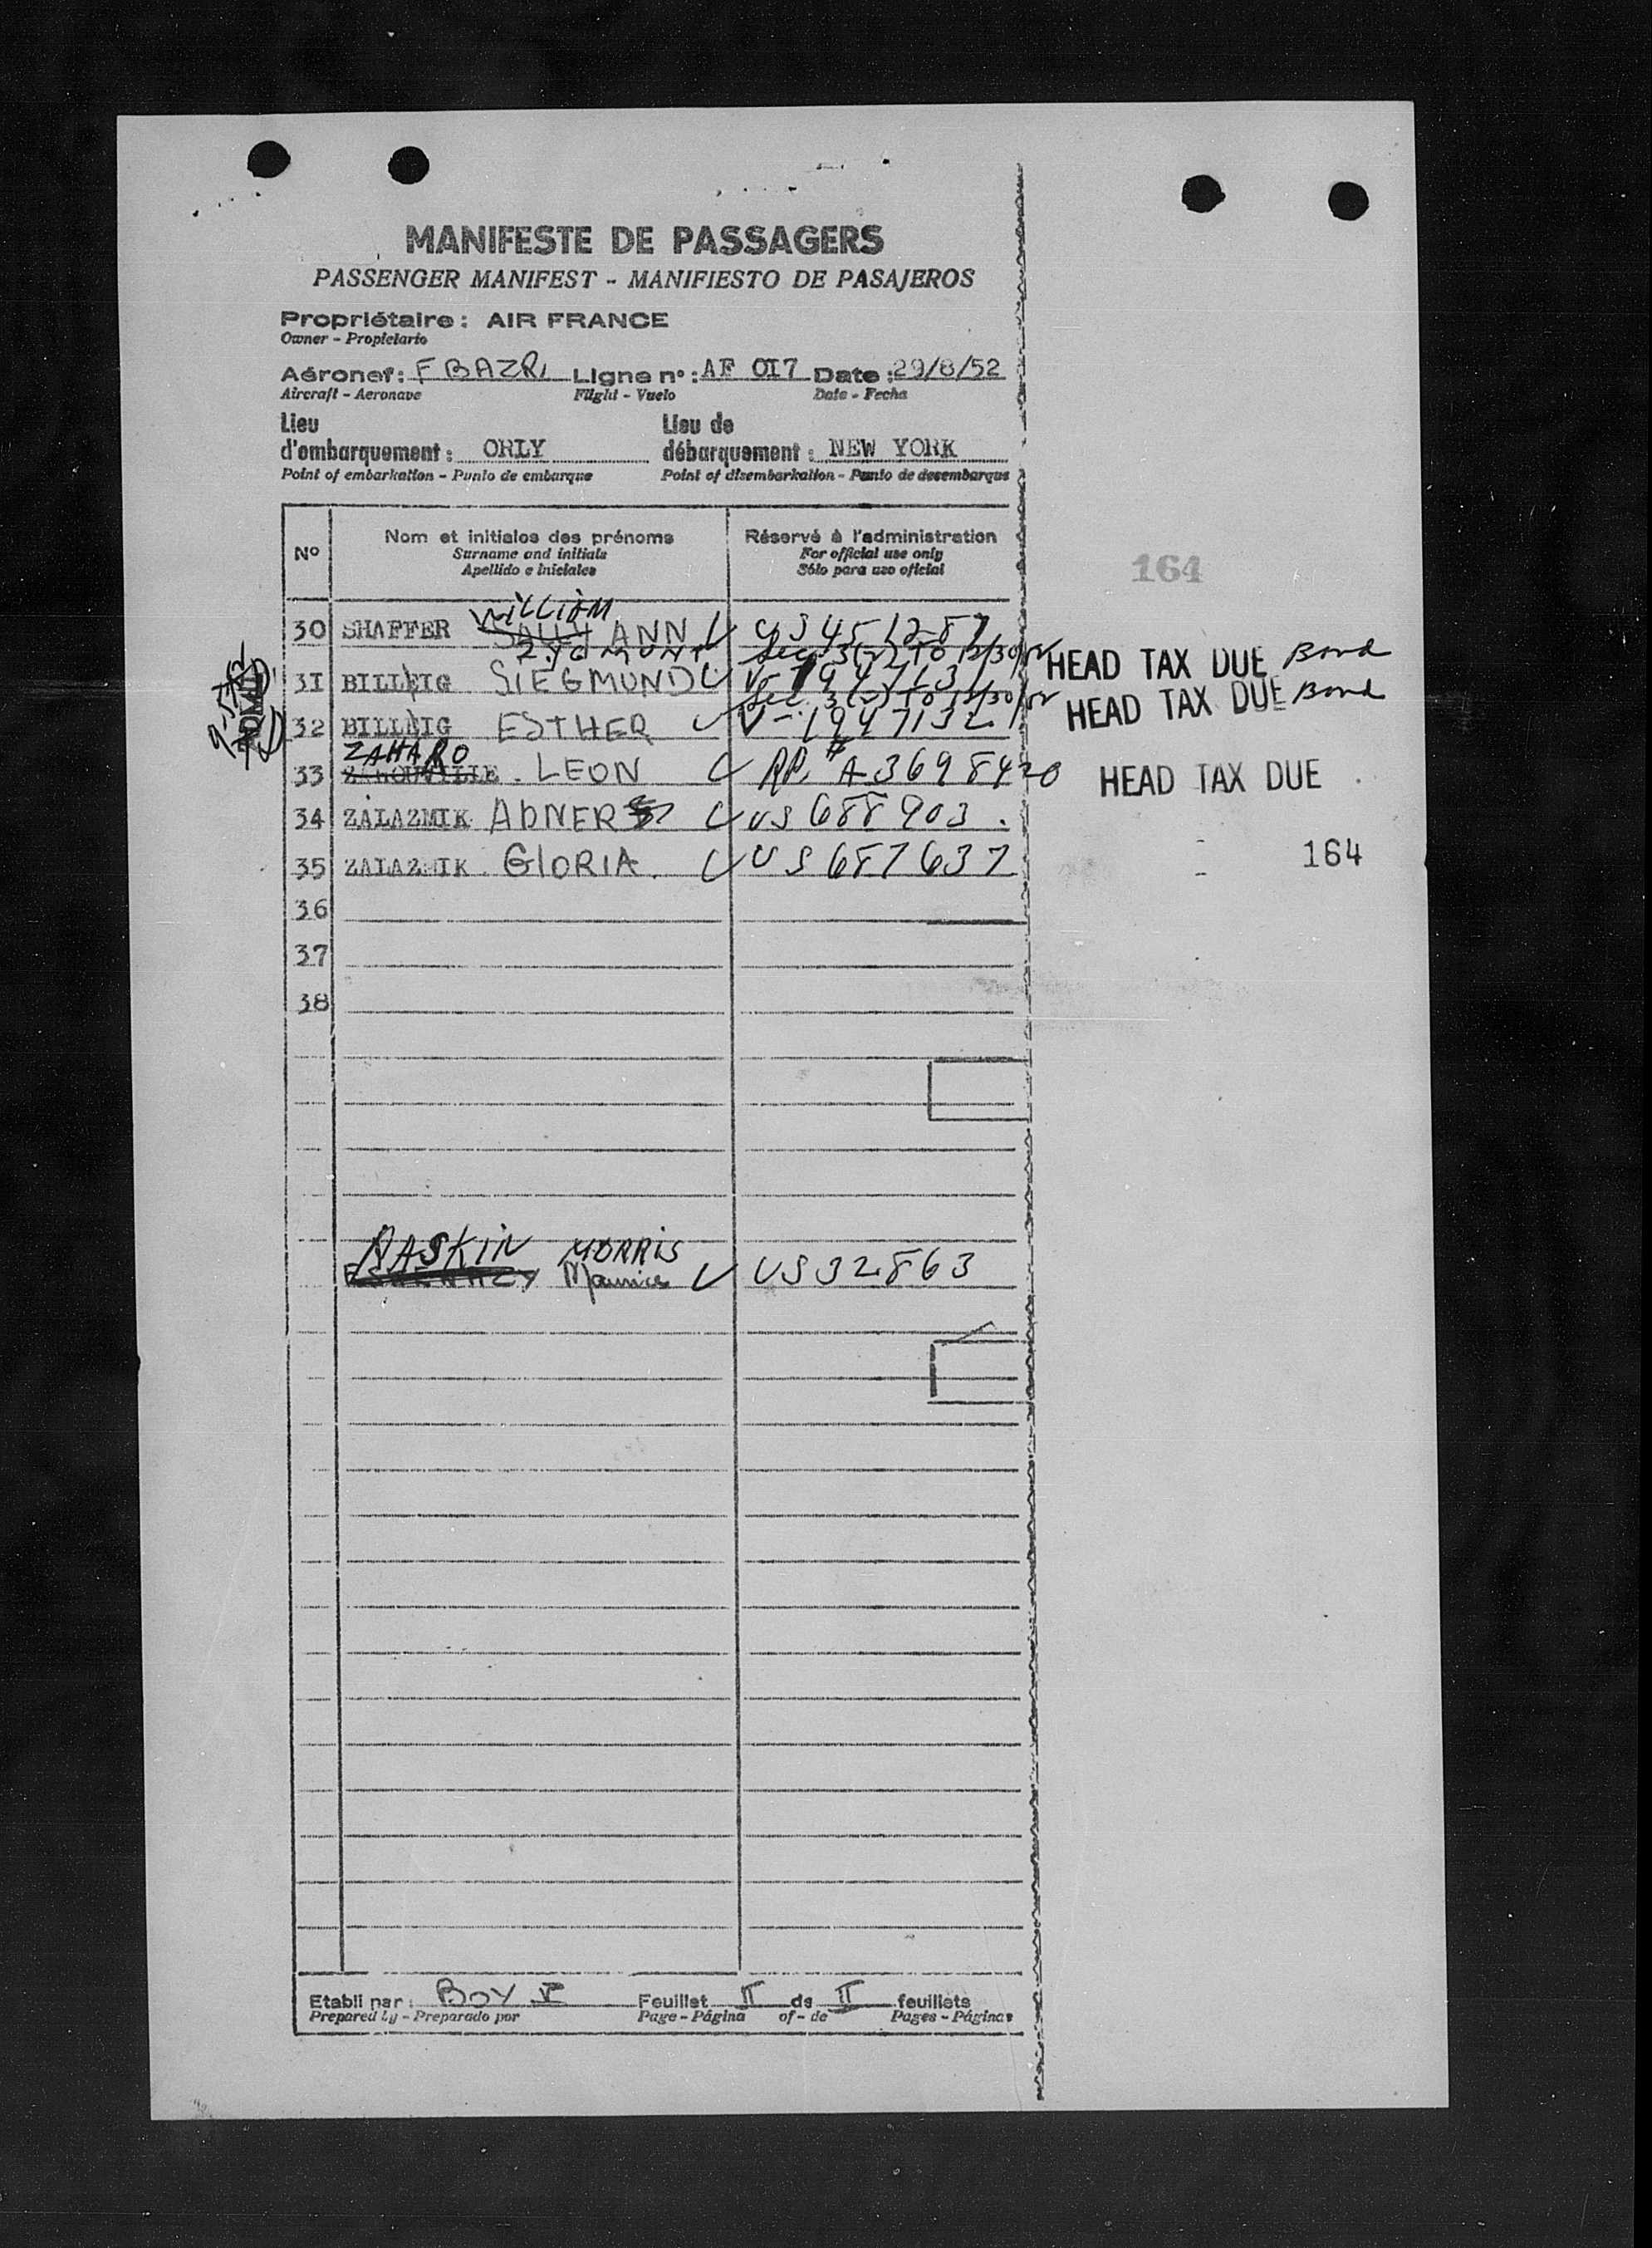 MANIFESTE DE PASSAGERS
PASSENGER MANIFEST - MANIFIESTO DE PASAJEROS
Propriétaire : AIR FRANCE
Owner - Propietario
Aéronef : F BAZR Ligne n° : AF 0I7 Date : 29/8/52
Aircraft - Aeronave Flight - Vuelo Date - Fecha
Lieu Lieu de
d'embarquement : ORLY débarquement : NEW YORK
Point of embarkation - Punto de embarque Point of disembarkation - Punto de desembarque
Nº Nom et initiales des prénoms Réservé à l'administration
Surname and initials For official use only
Apellido e iniciales Sólo para uso oficial
164
WILLIAM
30 SHAFFER SALLY ANN US 451287
ZYGMUNT Sec 3(2) TO 12/30/52 HEAD TAX DUE Bond
31 BILLIG SIEGMUND V-1947131
Sec. 3(2) TO 12/30/52 HEAD TAX DUE Bond
32 BILLIG ESTHER V-1947132
ZAHARO
33 LEON RP # A3698420 HEAD TAX DUE
34 ZALAZMIK ABNER US 688903.
35 ZALAZMIK. GLORIA. US 687637 164
36
37
38
RASKIN MORRIS
Maurice US 32863
Etabli par : BOY Feuillet II de II feuillets
Prepared by - Preparado por Page - Página of - de Pages - Páginas